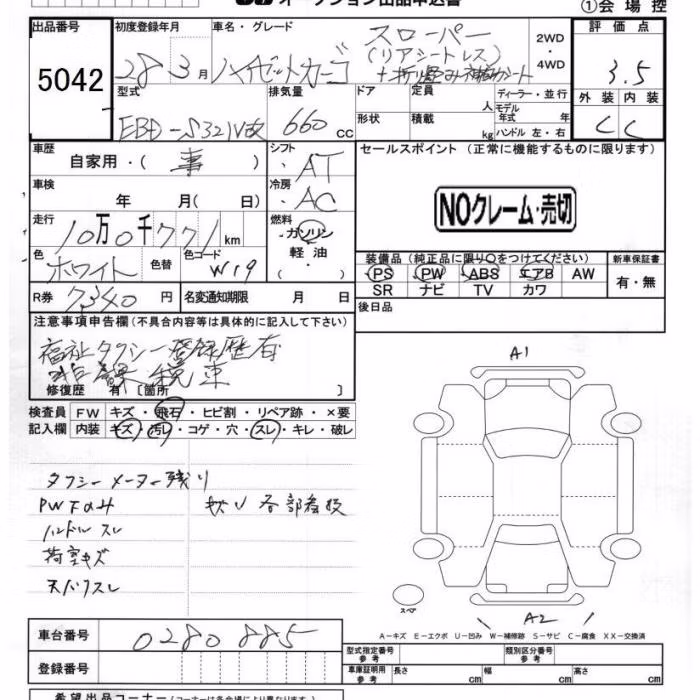 オークション出品申込書 ①会場控
出品番号 初度登録年月 車名・グレード 2WD・4WD 評価点
5042 28年3月 ハイゼットカーゴ スローパー (リアシートレス) 3.5
型式 排気量 ドア 定員 人 ディーラー・並行 外装 内装
EBD-S321V改 660 cc 形状 積載 kg モデル年式 年 ハンドル 左・右 C C
車歴 自家用・(事) シフト ・AT セールスポイント (正常に機能するものに限ります)
車検 年 月(日) 冷房 ・AC
NOクレーム・売切
走行 10万0千771km 燃料 ガソリン・軽油・( )
色 ホワイト 色替 色コード W19
装備品 (純正品に限り○をつけてください) 新車保証書
PS PW ABS エアB AW 有・無
SR ナビ TV カワ
R券 7340円 名変通知期限 月 日 後日品
注意事項申告欄 (不具合内容等は具体的に記入して下さい)
福祉タクシー登録歴有
非課税車
修復歴 有〔箇所 〕
検査員 FW キズ・飛石・ヒビ割・リペア跡・×要
記入欄 内装 キズ・汚レ・コゲ・穴・スレ・キレ・破レ
A1
タクシーメーター残り
PWFのみ 各部
ハンドルスレ
荷室キズ
天バリスレ
スペア
A2
A-キズ E-エクボ U-凹み W-補修跡 S-サビ C-腐食 XX-交換済
車台番号 0280885
型式指定番号 参考 類別区分番号 参考
登録番号 車庫証明用 参考 長さ cm 幅 cm 高さ cm
希望出品コーナー (コーナーは各会場により異なります。)